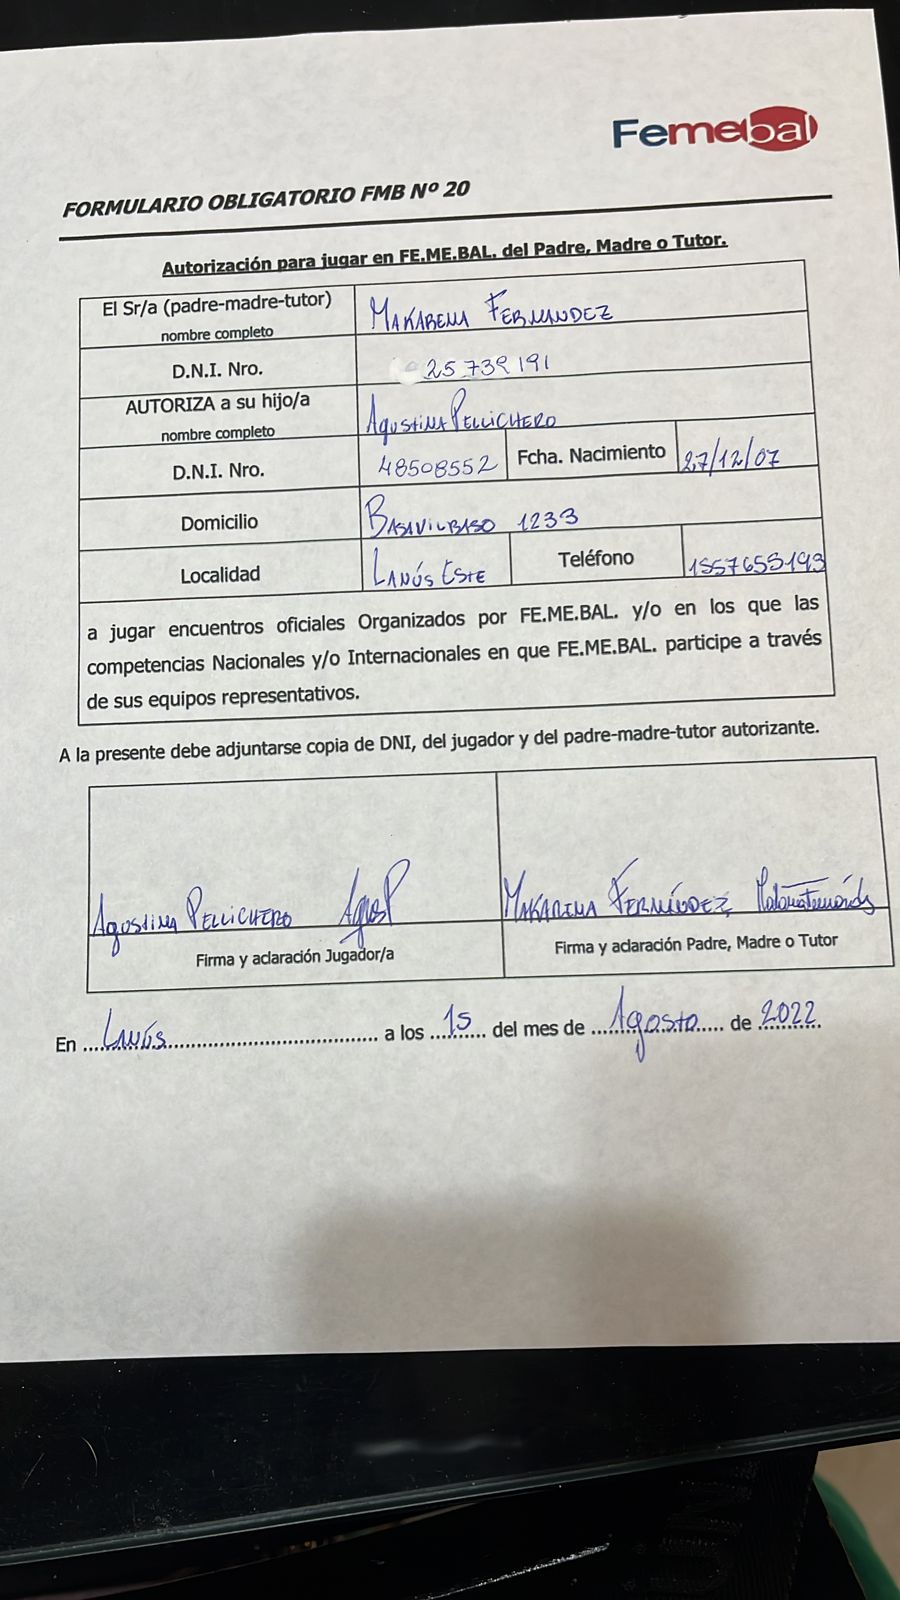 Femebal
FORMULARIO OBLIGATORIO FMB Nº 20
Autorización para jugar en FE.ME.BAL. del Padre, Madre o Tutor.
El Sr/a (padre-madre-tutor) MAKARENA FERNANDEZ
nombre completo
D.N.I. Nro. 25 739 191
AUTORIZA a su hijo/a AgustinA PELLICHERO
nombre completo
D.N.I. Nro. 48508552 Fcha. Nacimiento 27/12/07
Domicilio BASAVILBASO 1233
Localidad LANÚS ESTE Teléfono
a jugar encuentros oficiales Organizados por FE.ME.BAL. y/o en los que las
competencias Nacionales y/o Internacionales en que FE.ME.BAL. participe a través
de sus equipos representativos.
A la presente debe adjuntarse copia de DNI, del jugador y del padre-madre-tutor autorizante.
AgOSTINA PELLICHERO AgosP MAKARENA FERNÁNDEZ
Firma y aclaración Jugador/a Firma y aclaración Padre, Madre o Tutor
En LANÚS a los 15 del mes de Agosto de 2022